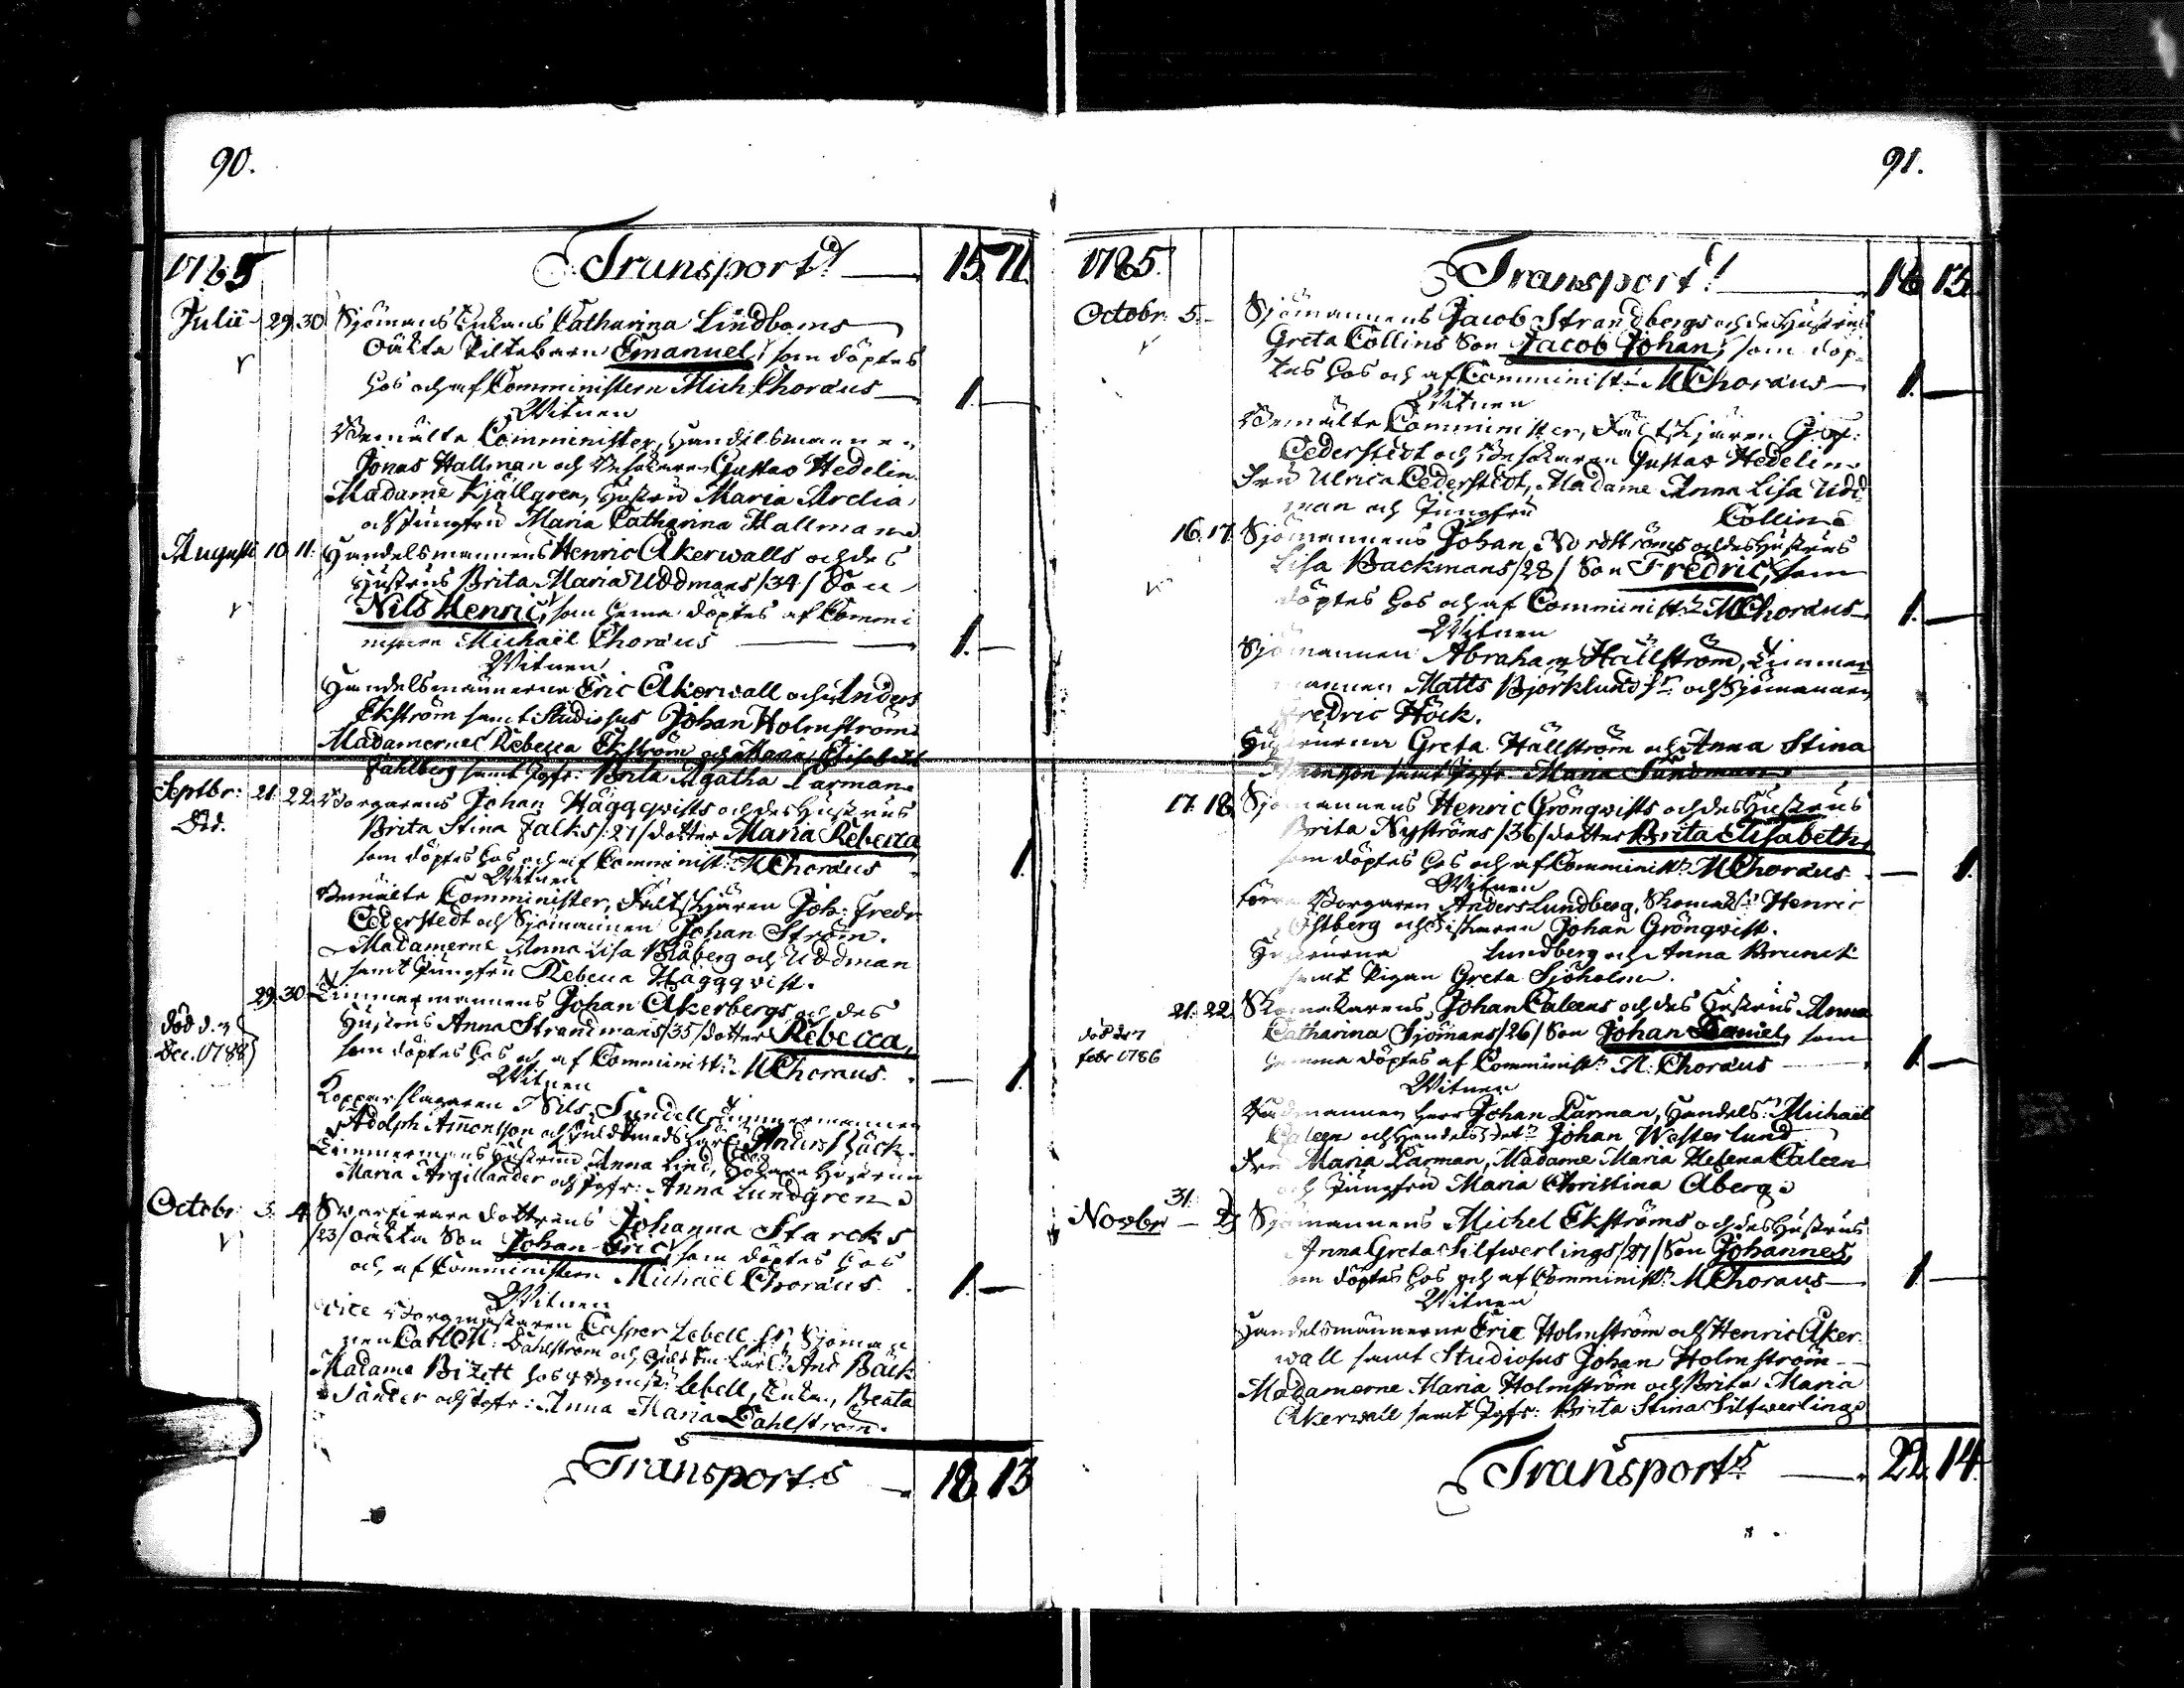 90.
1785 Transport 15. 11.
Julii 29. 30 Sjömans Enkans Catharina Lindboms
oäkta Piltebarn Emanuel, som döptes
hos och af Comministern Mich: Choræus 1. —
Witnen
Bemälte Comminister, Handelsmannen
Jonas Hallman och Besökaren Gustav Hedelin
Madame Kjällgren, Hustru Maria Arelia
och Jungfru Maria Catharina Hallman
Augusti 10 11. Handelsmannens Henric Åkerwalls och des
Hustrus Brita Maria Uddmans /34/ Son
Nils Henric, som hema döptes af Commi
nistern Michaël Choræus 1. —
Witnen
Handelsmännerne Eric Åkerwall och Anders
Ekström samt Studiosus Johan Holmström
Madamerne Rebecca Ekström och Maria Elisabeth
Fahlberg samt Jgfr: Brita Agatha Carman
Septbr: 21. 22. Borgarens Johan Häggqwists och des Hustrus
Brita Stina Falks /27/ dotter Maria Rebecca
som döptes hos och af Comminist: M Choræus 1.
Witnen
Bemälte Comminister, Fältskjären Joh: Fredr
Cederstedt och Sjömannen Johan Ström.
Madamerne Anna Lisa Blåberg och Uddman
samt Jungfru Rebecca Häggqvist.
29. 30 Timmermannens Johan Åkerbergs och des
död d. 3 Hustrus Anna Strandmans /35/ dotter Rebecca,
Dec. 1788
som döptes hos och af Comminist: M Choræus. — 1.
Witnen
Kopparslagaren Nils Sundell Timmermannen
Adolph Amonsson och Guldsmeds Anders Bäck.
Timmermans Hustrun Anna Lind, Hustrun
Maria Argillander och Jgfr: Anna Lundgren
Octobr: 3. 4 Swarfware dottrens Johanna Starcks
/23/ oäkta Son Johan Eric, som döptes hos
och af Comministern Michaël Choræus. 1. —
Witnen
vice Borgmästaren Casper Lebell Sjöman
nen Carl M: Dahlström och And Bäck
Madame Bizett hos Lebell, Enkan, Beata
och Jgfr: Anna Maria Dahlström.
Transport 18 13
91.
1785. Transport 18 13.
Octobr: 5. Sjömannens Jacob Strandbergs och des Hustrus
Greta Collins Son Jacob Johan, som döp-
tes hos och af Comminist: M Choræus 1. —
Witnen
Bemälte Comminister, Fältskjären
Cederstedt och Besökaren Gustav Hedelin
Fru Ulrica Cederstedt, Madame Anna Lisa Udd
man och Jungfru Collin
16. 17. Sjömannens Johan Nordströms och des Hustrus
Lisa Backmans /28/ Son Fredric, som
döptes hos och af Comminist: M Choræus 1. —
Witnen
Sjömannen Abraham Hällström, Timmer
mannen Matts Björklund och Sjömannen
Fredric Höck.
Hustruerna Greta Hällström och Anna Stina
Amonsson samt Jgfr Maria Sundman
17. 18. Sjömannens Henric Grönqwists och des Hustrus
Brita Nyströms /36/ dotter Brita Elisabeth,
som döptes hos och af Comminist: M Choræus — 1.
Witnen
Förra Borgaren Anders Lundberg, Skomak: Henric
Östberg och Fiskaren Johan Grönqvist.
Hustruerna Lundberg och Anna Brunck
samt Pigan Greta Sjöholm.
21. 22 Skomakarens Johan Caleens och des Hustrus Anna
död d. 7 Catharina Sjömans /26/ Son Johan Daniel, som
febr 1786 hemma döptes af Comminist: M. Choræus 1. —
Witnen
Rådmannen Herr Johan Carman, Handels: Michaël
Caleen och Handels Johan Westerlund
Fru Maria Carman, Madame Maria Helena Caleen
och Jungfru Maria Christina Åberg
31.
Novbr — 2 Sjömannens Michel Ekströms och des Hustrus
Anna Greta Silfwerlings /27/ Son Johannes,
som döptes hos och af Comminist: M Choræus 1 —
Witnen
Handelsmännerne Eric Holmström och Henric Åker-
wall samt Studiosus Johan Holmström
Madamerne Maria Holmström och Brita Maria
Åkerwall samt Jgfr: Brita Stina Silfwerling
Transport 22. 14.